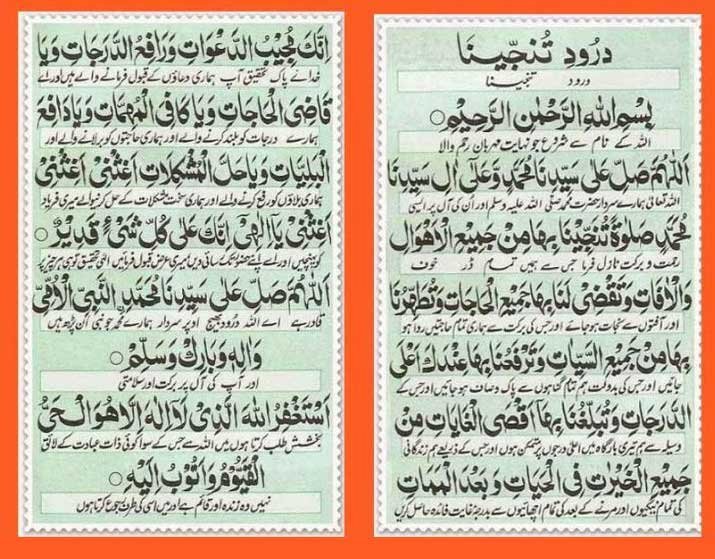 درُودِ تُنَجِّينَا
درود تنجینا
بِسْمِ اللهِ الرَّحْمٰنِ الرَّحِيْمِ○
اللہ کے نام سے شروع جو نہایت مہربان رحم والا
اَللّٰهُمَّ صَلِّ عَلٰى سَيِّدِنَا مُحَمَّدٍ وَّعَلٰى اٰلِ سَيِّدِنَا
اللہ تعالیٰ ہمارے سردار حضرت محمد صلی اللہ علیہ وسلم اور ان کی آل پر ایسی
مُحَمَّدٍ صَلٰوةً تُنَجِّيْنَا بِهَا مِنْ جَمِيْعِ الْاَهْوَالِ
رحمت و برکت نازل فرما جس سے ہمیں تمام ڈر خوف
وَالْاٰفَاتِ وَتَقْضِىْ لَنَا بِهَا جَمِيْعَ الْحَاجَاتِ وَتُطَهِّرُنَا
اور آفتوں سے نجات ہو جائے اور جس کی برکت سے ہماری تمام حاجتیں روا ہو
بِهَا مِنْ جَمِيْعِ السَّيِّاٰتِ وَتَرْفَعُنَا بِهَا عِنْدَكَ اَعْلَى
جائیں اور جس کی بدولت ہم تمام گناہوں سے پاک و صاف ہو جائیں اور جس کے
الدَّرَجَاتِ وَتُبَلِّغُنَا بِهَا اَقْصَى الْغَايَاتِ مِنْ
وسیلہ سے ہم تیری بارگاہ میں اعلیٰ درجوں پر متمکن ہوں اور جس کے ذریعے ہم زندگانی
جَمِيْعِ الْخَيْرَاتِ فِى الْحَيَاتِ وَبَعْدَ الْمَمَاتِ
کی تمام نیکیوں اور مرنے کے بعد کی تمام اچھائیوں سے بدرجہ غایت فائدہ حاصل کریں
اِنَّكَ مُجِيْبُ الدَّعْوَاتِ وَرَافِعُ الدَّرَجَاتِ وَيَا
خدائے پاک تحقیق آپ ہماری دعاؤں کے قبول فرمانے والے ہیں اور اے
قَاضِىَ الْحَاجَاتِ وَيَا كَافِىَ الْمُهِمَّاتِ وَيَا دَافِعَ
ہمارے درجات کو بلند کرنے والے اور ہماری حاجتوں کو بر لانے والے اور
الْبَلِيَّاتِ وَيَا حَلَّ الْمُشْكِلَاتِ اَغِثْنِىْ اَغِثْنِىْ
ہماری بلاؤں کو رفع کرنے والے اور ہماری سخت مشکلات کے حل کرنیوالے میری فریاد
اَغِثْنِىْ يَا اِلٰهِىْ اِنَّكَ عَلٰى كُلِّ شَىْءٍ قَدِيْرٌ○
کو پہنچیں اور اے اپنے حضور تک رسائی دیں میری عرض قبول فرمائیں الٰہی تحقیق تو ہی ہر چیز پر
اَللّٰهُمَّ صَلِّ عَلٰى سَيِّدِنَا مُحَمَّدِ النَّبِىِّ الْاُمِّىِّ
قادر ہے اے اللہ درود بھیج اوپر سردار ہمارے محمد جو نبی ان پڑھ ہیں
وَاٰلِهٖ وَبَارِكْ وَسَلِّمْ○
اور آپ کی آل پر برکت اور سلامتی
اَسْتَغْفِرُ اللهَ الَّذِىْ لَا اِلٰهَ اِلَّا هُوَ الْحَىُّ
بخشش طلب کرتا ہوں میں اللہ سے جس کے سوا کوئی ذات عبادت کے لائق
الْقَيُّوْمُ وَاَتُوْبُ اِلَيْهِ○
نہیں وہ زندہ اور قائم ہے اور میں اسی کی طرف رجوع کرتا ہوں